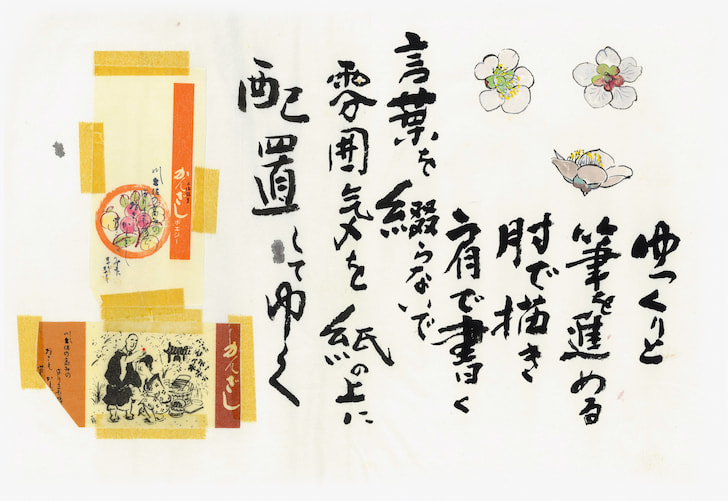 ゆっくりと
筆を進める
肘で描き
肩で書く
言葉を綴らないで
雰囲気を紙の上に
配置してゆく
かんざし
ポエジー
かんざし